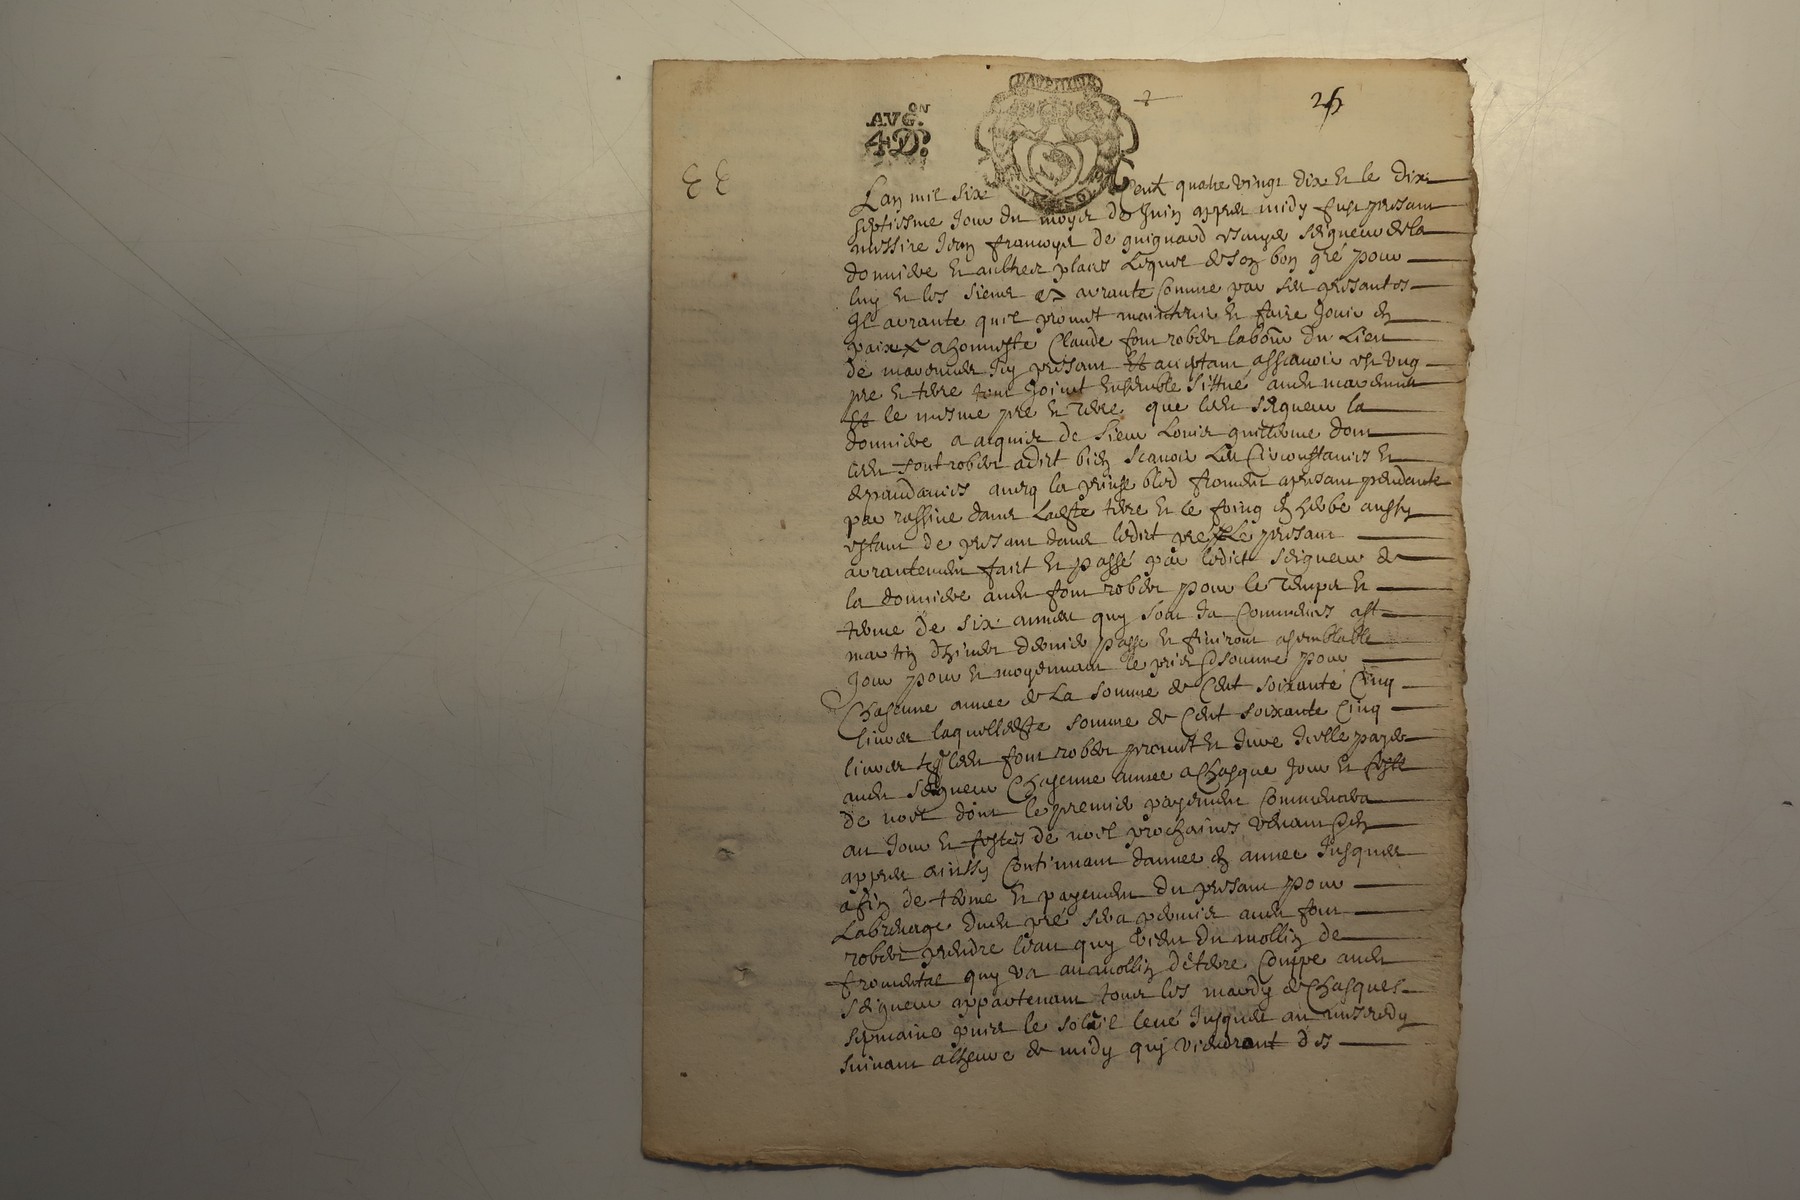 DAVPHINE
AVG.ON
4D.
2
25
Lan mil six Cent quatre vingt dix et le dix
septiesme Jour du moys de Juin appres midy fust presant
messire Jean francoys de guignard seigneur de la
donniere et aultres places Lequel de son bon gré pour
luy et les siens arrante Comme par ses presantes
Il arrante quil promet maintenir et faire Jouir en
paix a honneste Claude font robert labor du Lieu
de presant et aceptant asscauoir ung
pre et terre tout Joinct Ensemble sittué aud
et le mesme pre et terre que led seigneur la
donniere a acquis de sieur Louis guillerme dont
led font robert a dict bien scauoir Les Circonstances et
depandances aueq la prinse bled froment apresant pendante
par rassine dans Ladste terre et le foing en herbe aussy
estant de presant dans ledict pre Le presant
arrantement faict et passé par ledict seigneur de
la donniere aud font robert pour le temps et
terme de six annees quy sont Ja Commences a st
martin dhiuer dernier passe et finiront a semblable
Jour pour et moyennant le pris et somme pour
Chascune annee de La somme de Cent soixante Cinq
liures laquelle dste somme de Cent soixante Cinq
liures led font robert promet et Jure Icelle payer
aud seigneur Chascune annee a Chasque Jour et feste
de noel dont le premier payement Commencera
au Jour et festes de noel prochaines venant et
appres ainssy Continuant dannee en annee Jusques
a fin de terme et payement du presant pour
Labreuage dud pré sera permis aud font
robert prendre leau quy vient du mollin de
fromental quy va au mollin de terre Couppe aud
seigneur appartenant tous les mardy de Chasques
sepmaine puis le soleil leué Jusques au mescredy
suiuant a lheure de midy quy viendront des